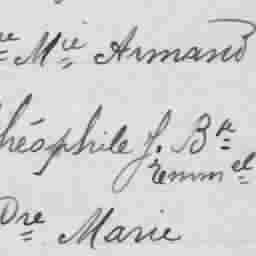 re Mie Armand
héophile J. Bte
Emmel
Dre Marie